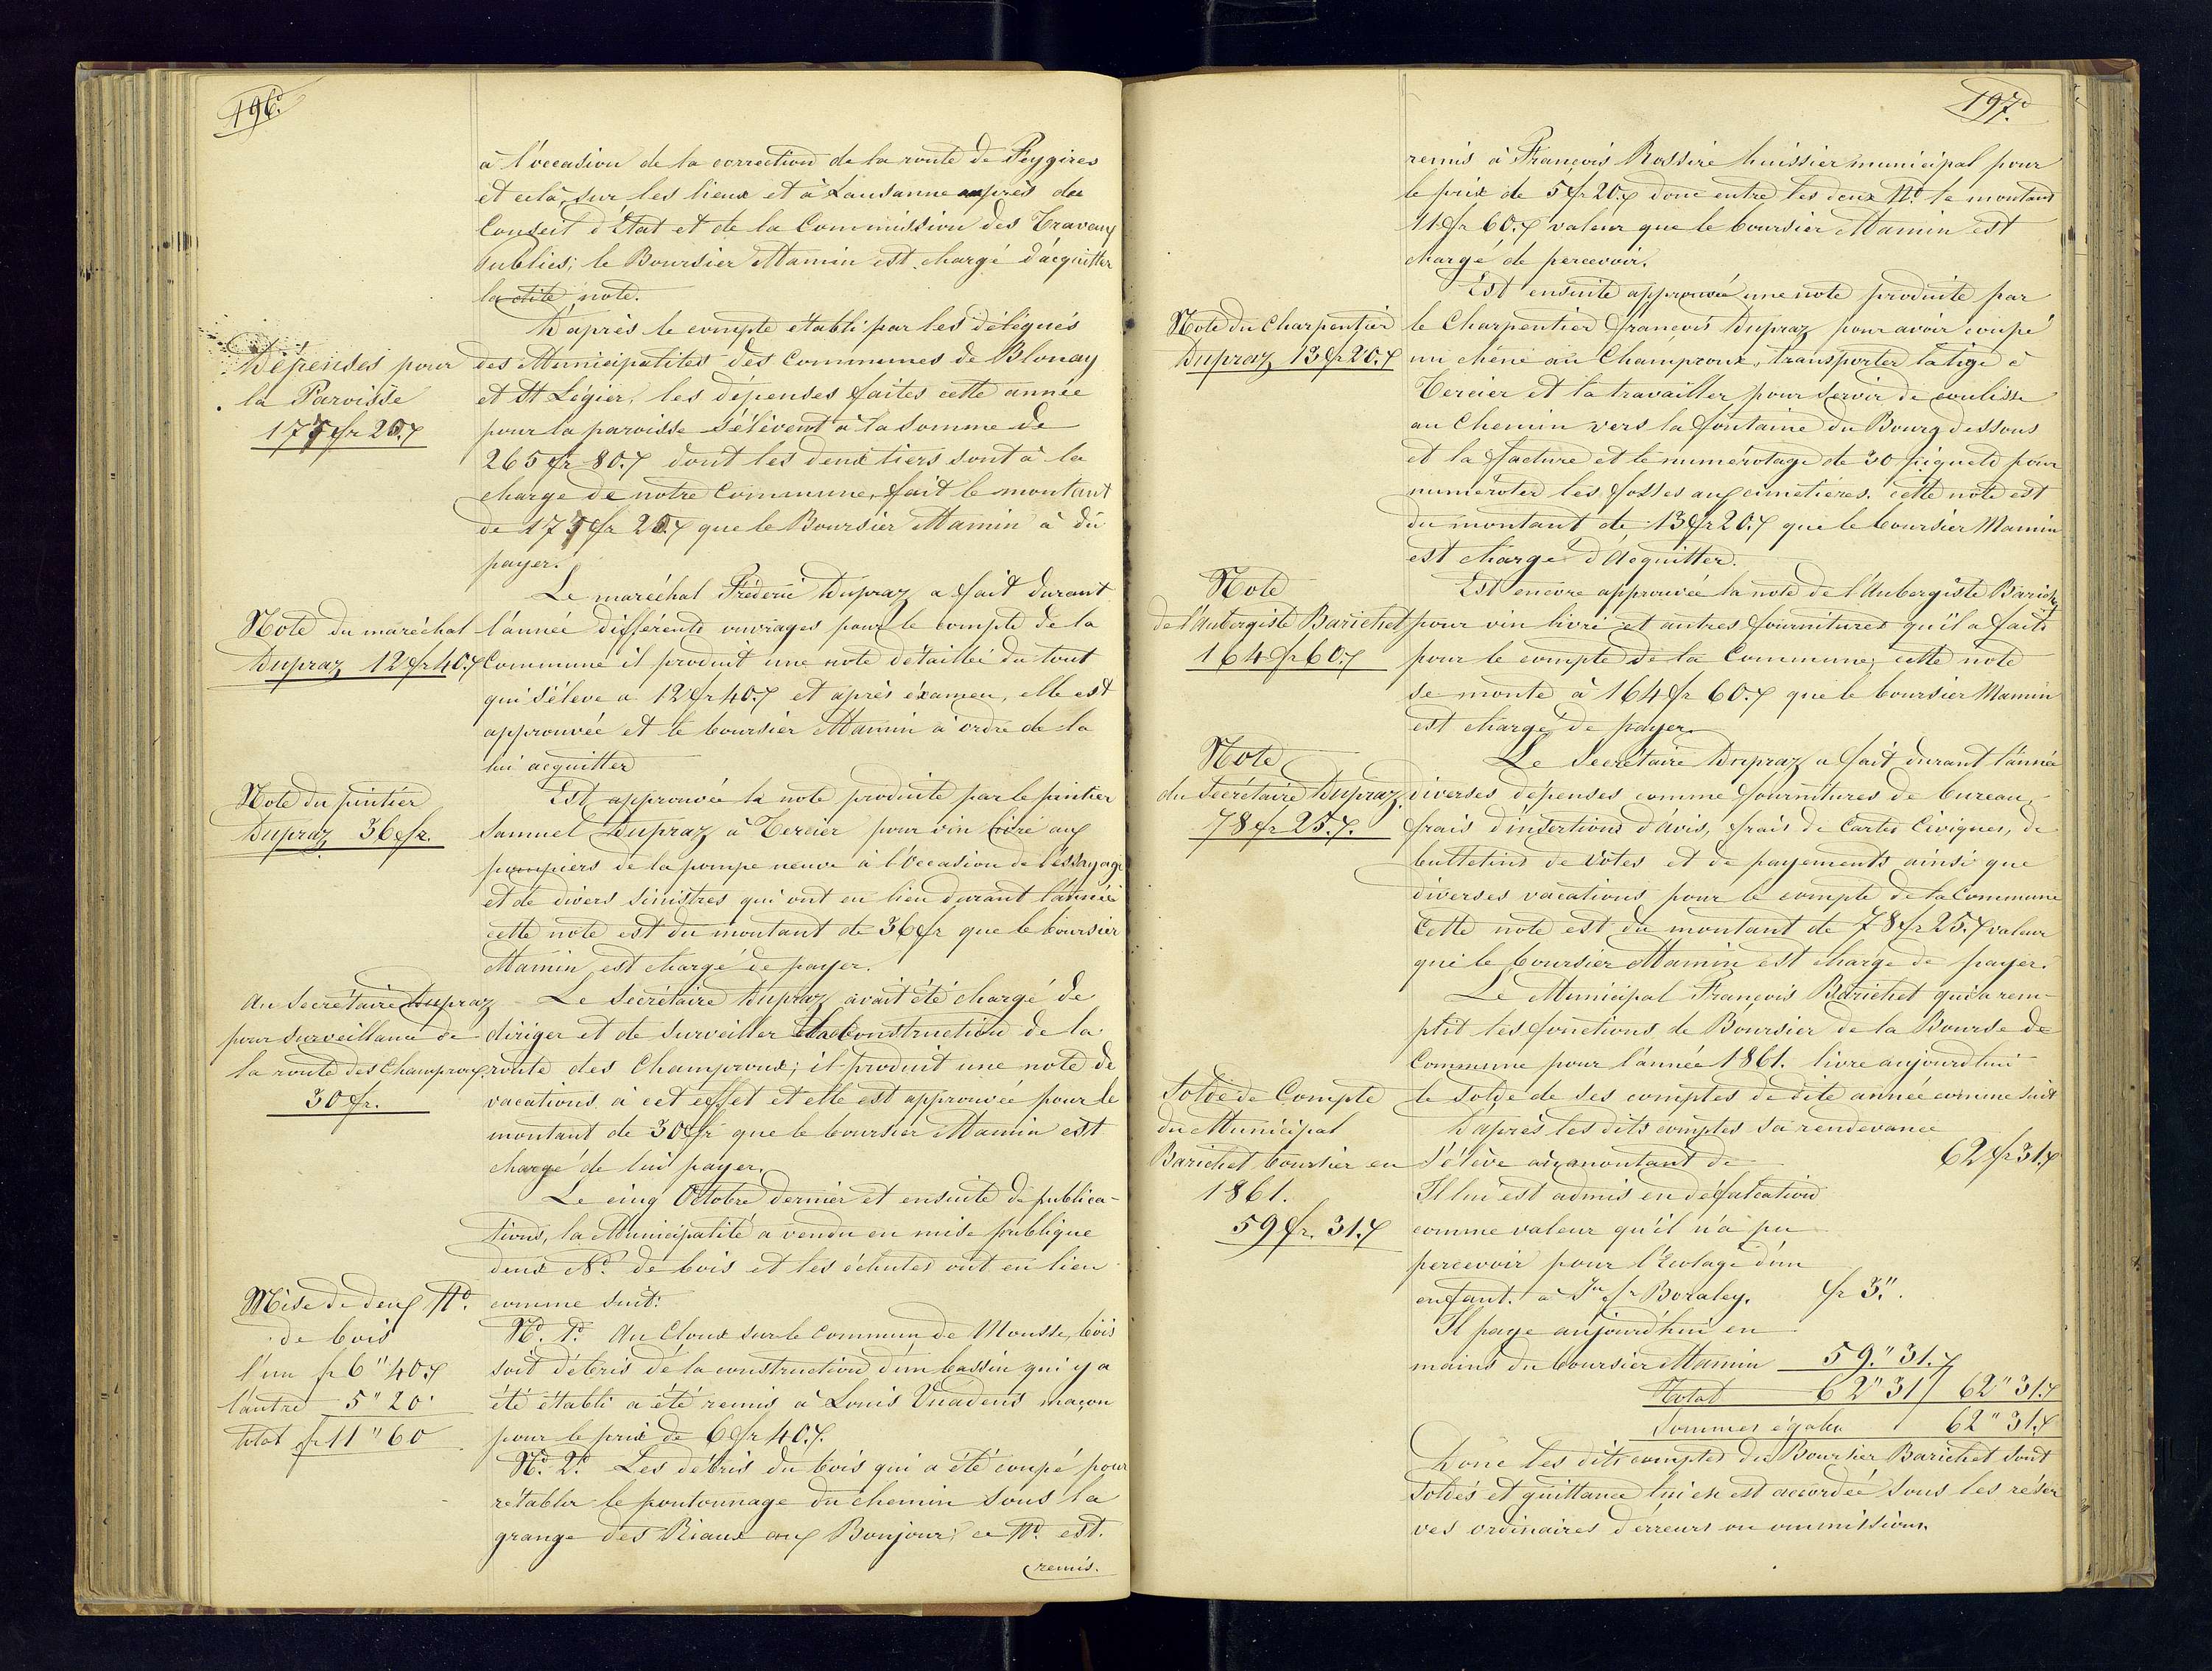 196.
à l'occasion de la correction de la route de Feygires
et cela, sur les lieux et à Lausanne auprès du
Conseil d'État et de la Commission des Travaux
publics; le Boursier Mamin est chargé d'acquitter
la dite note.
D'après le compte établi par les délégués
Dépenses pour
la Paroisse
177 fr 20.
des Municipalités des Communes de Blonay
et St Légier, les dépenses faites cette année
pour la paroisse s'élèvent à la somme de
265 fr 80. dont les deux tiers sont à la
charge de notre Commune, fait le montant
de 177 fr 20 que le Boursier Mamin à dû
payer.
Le maréchal Fréderic Dupraz a fait durant
Note du maréchal
Dupraz 12 fr 40.
l'année différents ouvrages pour le compte de la
Commune il produit une note détaillée du tout
qui s'élève a 12 fr 40. et après éxamen, elle est
approuvée et le boursier Mamin à ordre de la
lui acquitter
Est approuvée la note produite par le pintier
Note du pintier
Dupraz 36 fr.
Samuel Dupraz à Tercier pour vin livré aux
pompiers de la pompe neuve à l'occasion de l'éssayage
et de divers sinistres qui ont eu lieu durant l'année
cette note est du montant de 36 fr que le boursier
Mamin est chargé de payer.
Au Secrétaire Dupraz
pour surveillance de
la route des Champroux
30 fr.
Le Secrétaire Dupraz avait été chargé de
diriger et de surveiller la construction de la
route des Champroux; il produit une note de
vacations à cet effet et elle est approuvée pour le
montant de 30 fr que le boursier Mamin est
chargé de lui payer.
Le cinq Octobre dernier et ensuite de publica-
tions, la Municipalité a vendu en mise publique
deux No. de bois et les échutes ont eu lieu
Mise de deux No.
de bois
l'un fr 6" 40.
l'autre 5" 20
total fr 11" 60
comme suit:
No. 1o. Au Cloux sur le Commun de Mousse, bois
soit débris de la construction d'un bassin qui y a
été établi a été remis à Louis Vuadens maçon
pour le prix de 6 fr 40.
No. 2o. Les débris du bois qui a été coupé pour
rétablir le pontonnage du chemin sous la
grange des Riaux aux Bonjour; ce No. est.
remis.
197.
remis à François Rossire huissier municipal pour
le prix de 5 fr 20. donc entre les deux No. le montant
11 fr 60. valeur que le boursier Mamin est
chargé de percevoir.
Est ensuite approuvée une note produite par
Note du Charpentier
Dupraz 13 fr 20.
le Charpentier François Dupraz pour avoir coupé
un chêne au Champroux, transporter la tige à
Tercier et la travailler pour servir de coulisse
au Chemin vers la fontaine du Bourg dessous
et la facture et le numérotage de 30 piquets pour
numéroter les fosses aux cimetières. cette note est
du montant de 13 fr 20. que le boursier Mamin
est chargé d'Acquitter.
Est encore approuvée la note de l'Aubergiste Barichet
Note
de l'Aubergiste Barichet
164 fr 60.
pour vin livré et autres fournitures qu'il a faits
pour le compte de la Commune; cette note
se monte à 164 fr 60. que le boursier Mamin
est chargé de payer.
Note
du Secrétaire Dupraz
78 fr 25.
Le Secrétaire Dupraz a fait durant l'année
diverses dépenses comme fournitures de bureau,
frais d'insertions d'avis, frais de Cartes Civiques, de
bulletins de Votes et de payements ainsi que
diverses vacations pour le compte de la Commune
Cette note est du montant de 78 fr 25. valeur
que le boursier Mamin est chargé de payer.
Le Municipal François Barichet qui a rem-
plit les fonctions de Boursier de la Bourse de
Commune pour l'année 1861. livre aujourd'hui
Solde de Compte
du Municipal
Barichet boursier en
1861.
59 fr. 31.
le solde de ses comptes de dite année comme suit
D'après les dits comptes sa rendevance
s'élève au montant de 62 fr 31.
Il lui est admis en défalcation
comme valeur qu'il n'a pu
percevoir pour l'Ecolage d'un
enfant. à Jn fr Boraley. fr 3".
Il paye aujourd'hui en
mains du boursier Mamin 59." 31.
Total 62" 31 62" 31.
Sommes égales 62" 31.
Donc les dits comptes du Boursier Barichet sont
soldés et quittance lui en est accordée sous les réser
ves ordinaires d'érreurs ou ommissions.